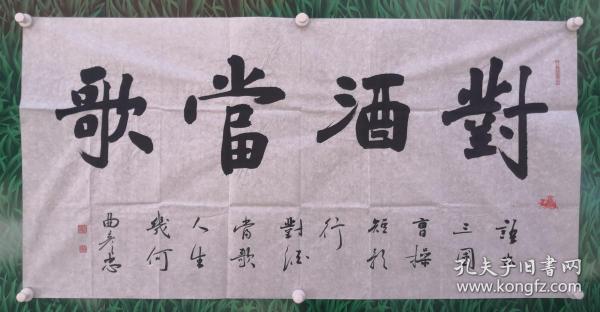 對酒當歌
語出
三國
曹操
短歌
行
對酒
當歌
人生
幾何
曲
忠
孔夫子旧书网
www.kongfz.com